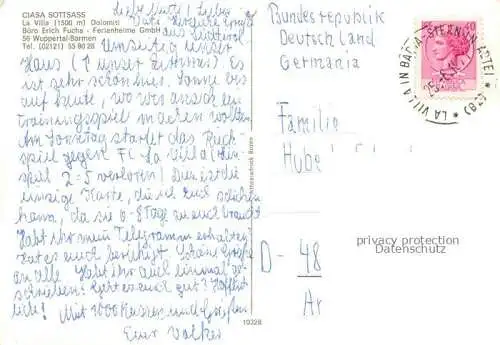 CIASA SOTTSASS
La Villa (1500 m) Dolomiti
Büro Erich Fuchs - Ferienheime GmbH
56 Wuppertal-Barmen
Tel. (02121) 55 80 28
Liebe Mutti! Lieber
Vati! Herzliche Grüße
aus Südtirol
Umseitig unser
Haus (↑ unser Zimmer) Es
ist sehr schön hier. Sonne bis
auf heute, wo wir auch ein
Trainingsspiel machen wollten.
Am Sonntag startet das Rück-
spiel gegen FC La Villa (Hin-
spiel 2-5 verloren)! Dies ist die
einzige Karte, die ich euch schicken
kann, da sie 6-8 Tage zu euch braucht
Habt ihr mein Telegramm erhalten?
Hat es euch beruhigt? Schöne Grüße
an alle. Habt ihr auch einmal ge-
schrieben? Geht es euch gut? Hoffent-
lich! Mit 1000 Küssen und Grüßen
Euer Volker
10328
Bundesrepublik
Deutschland
Germania
Familie
Hube
D - 48
Ar
LA VILLA IN BADIA - STERN IN ABTEI
40
privacy protection
Datenschutz